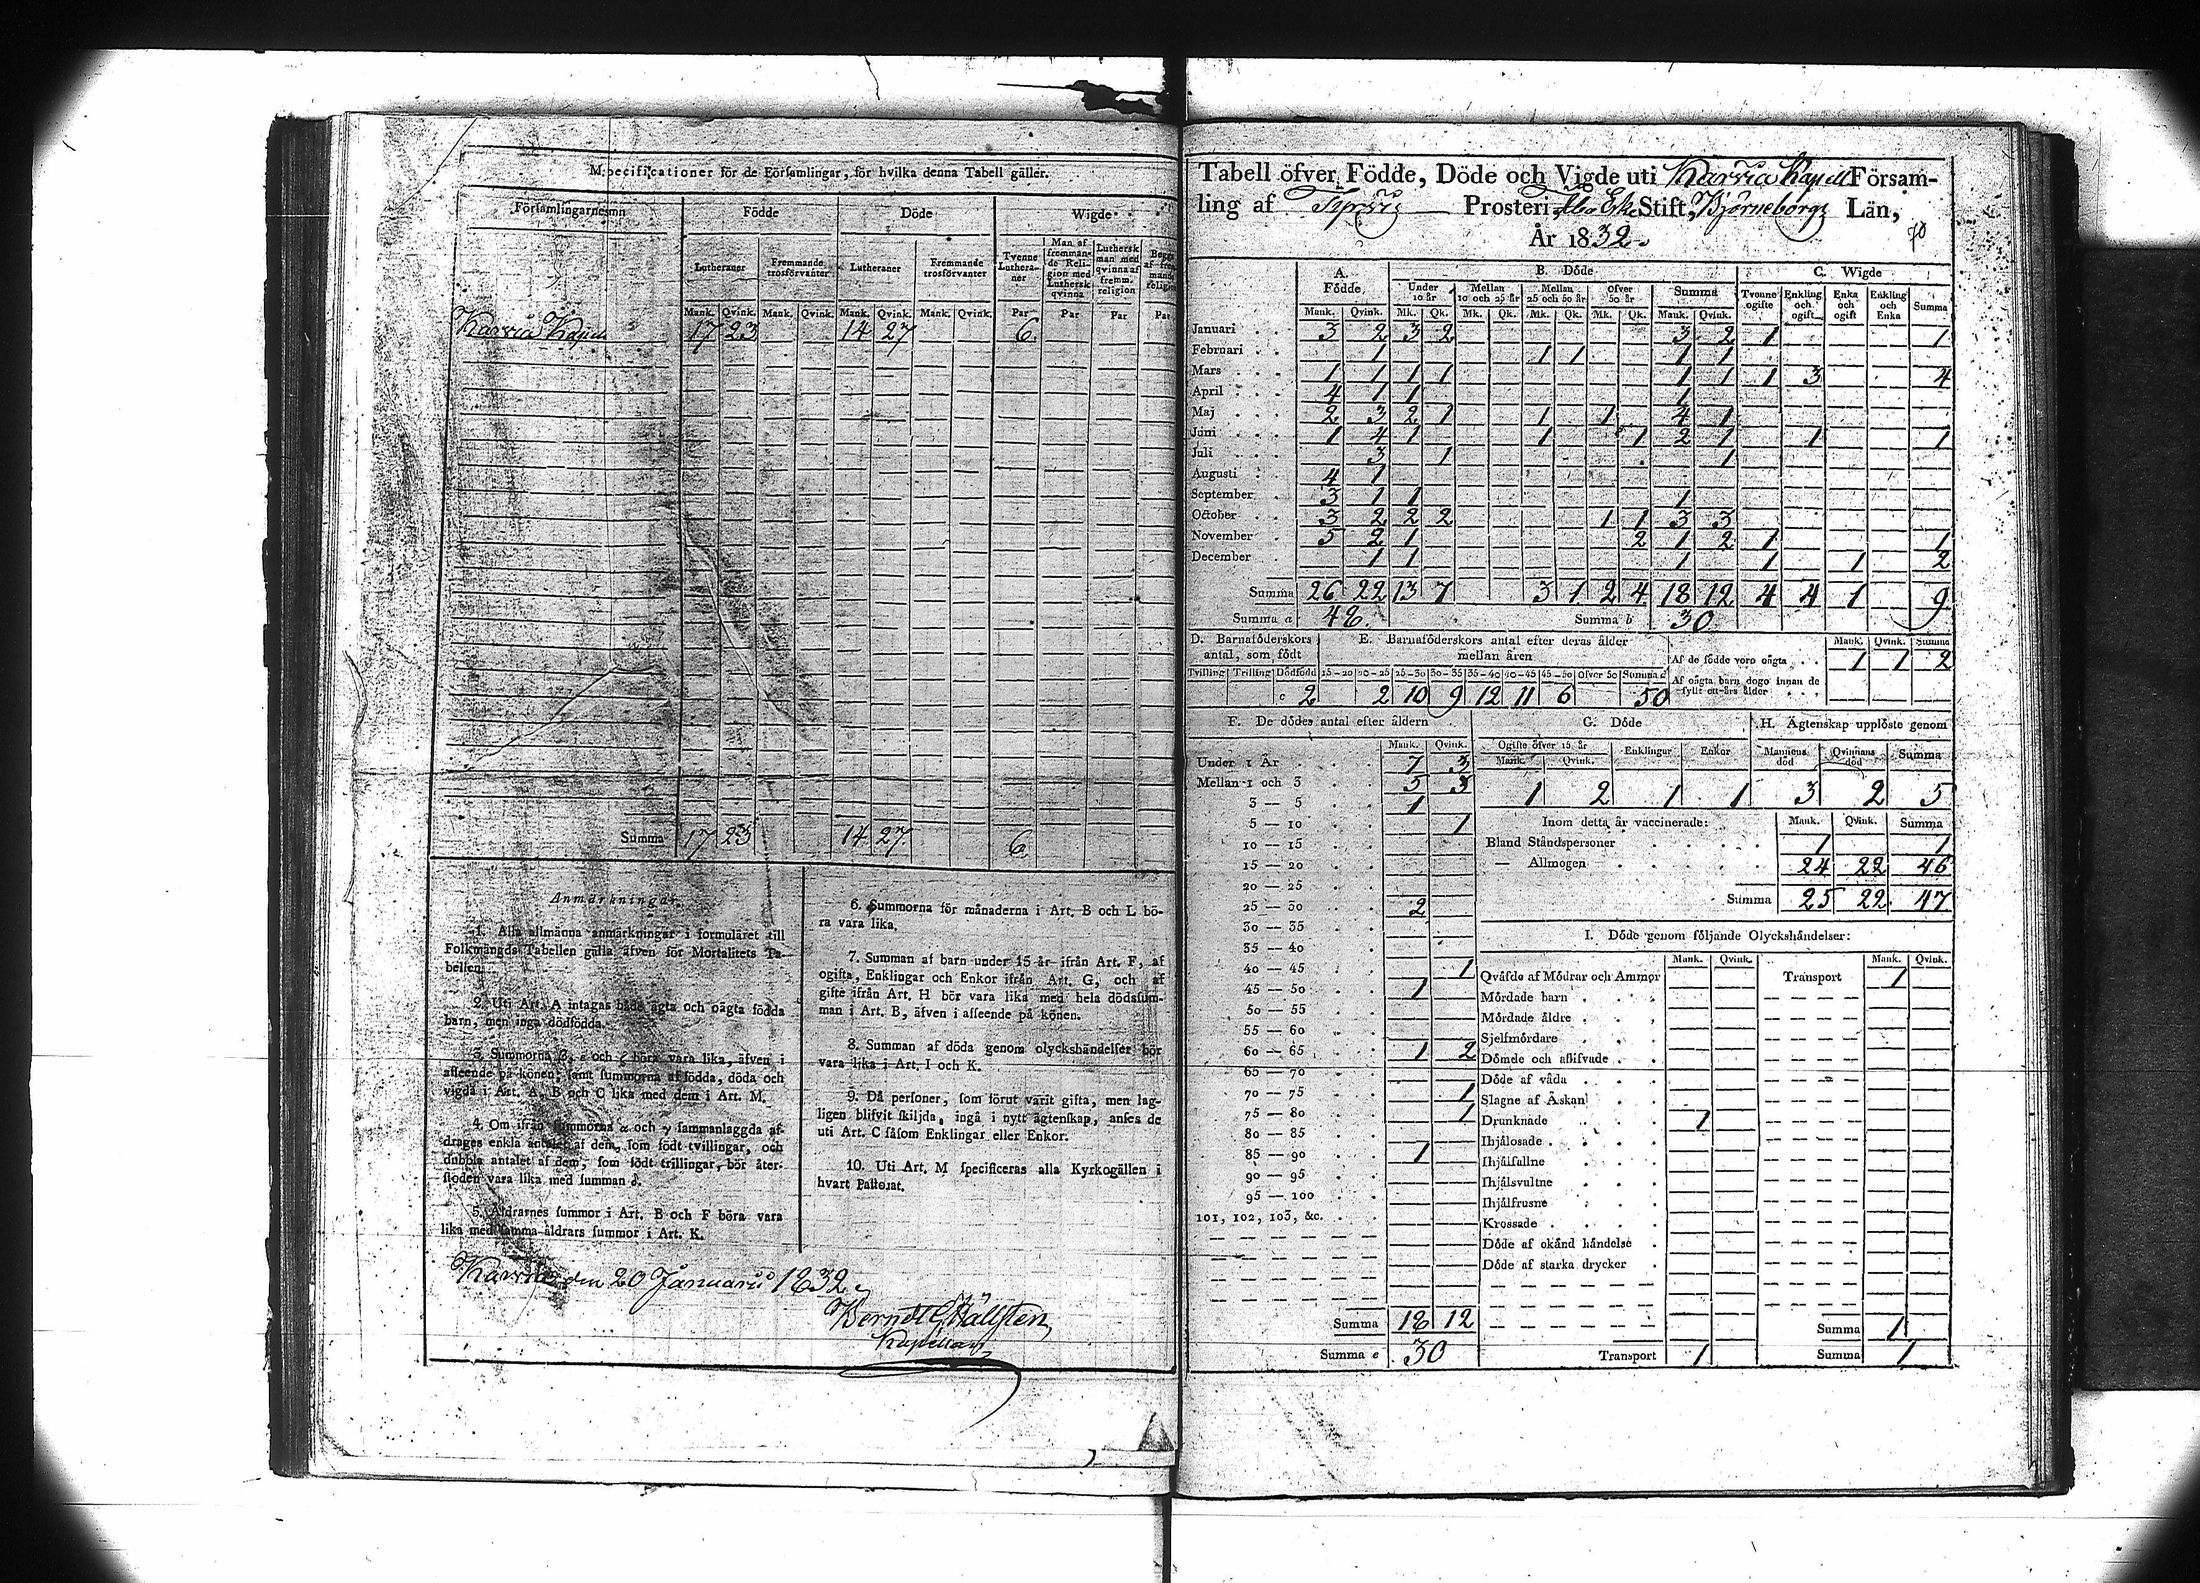 M. Specificationer för de Församlingar, för hvilka denna Tabell gäller.
Församlingarnes namn Födde Döde Wigde
Lutheraner Fremmande trosförvanter Lutheraner Fremmande trosförvanter Tvenne Lutheraner Man af fremmande Religion med Luthersk qvinna Luthersk man med qvinna af fremm. religion
Mank. Qvink. Mank. Qvink. Mank. Qvink. Mank. Qvink. Par Par Par Par
Karvia Kapell 17 23 14 27 6
Summa 17 23 14 27 6
Anmärkningar.
1. Alla allmänna anmärkningar i formuläret till
Folkmängds Tabellen gälla äfven för Mortalitets Ta-
bellen.
2. Uti Art. A intagas både ägta och oägta födda
barn, men inga dödfödda.
3. Summorna β, ε och ζ böra vara lika, äfven i
afseende på könen; samt summorna af födda, döda och
vigda i Art. A, B och C lika med dem i Art. M.
4. Om ifrån summorna α och γ sammanlaggda af-
drages enkla antalet af dem, som födt tvillingar, och
dubbla antalet af dem, som födt trillingar, bör åter-
stoden vara lika med summan δ.
5. Åldrarnes summor i Art. B och F böra vara
lika med samma åldrars summor i Art. K.
6. Summorna för månaderna i Art. B och L bö-
ra vara lika.
7. Summan af barn under 15 år ifrån Art. F, af
ogifta, Enklingar och Enkor ifrån Art. G, och af
gifte ifrån Art. H bör vara lika med hela dödssum-
man i Art. B, äfven i afseende på könen.
8. Summan af döda genom olyckshändelser bör
vara lika i Art. I och K.
9. Då personer, som förut varit gifta, men lag-
ligen blifvit skiljda, ingå i nytt ägtenskap, anses de
uti Art. C såsom Enklingar eller Enkor.
10. Uti Art. M specificeras alla Kyrkogällen i
hvart Pastorat.
Karvia den 20 Januarii 1832
Berndt G Hällsten
Kapellan
Tabell öfver Födde, Döde och Vigde uti Karvia Kapell Försam-
ling af Prosteri, Åbo Erke Stift, Björneborgs Län,
År 1832. 70
A. Födde B. Döde C. Wigde
Under 10 år Mellan 10 och 25 år Mellan 25 och 50 år Öfver 50 år Summa Tvenne ogifte Enkling och ogift Enka och ogift Enkling och Enka Summa
Mank. Qvink. Mk. Qk. Mk. Qk. Mk. Qk. Mk. Qk. Mank. Qvink.
Januari 3 2 3 2 3 2 1 1
Februari 1 1 1 1 1
Mars 1 1 1 1 1 1 1 3 4
April 4 1 1 1
Maj 2 3 2 1 1 1 4 1
Juni 1 4 1 1 1 2 1 1 1
Juli 3 1 1
Augusti 4 1
September 3 1 1 1
October 3 2 2 2 1 1 3 3
November 5 2 1 2 1 2 1 1
December 1 1 1 1 1 2
Summa 26 22 13 7 3 1 2 4 18 12 4 4 1 9
Summa a 48 Summa b 30
D. Barnaföderskors antal, som födt E. Barnaföderskors antal efter deras ålder mellan åren Mank. Qvink. Summa
Af de födde voro oägta 1 1 2
Tvilling Trilling Dödfödd 15-20 20-25 25-30 30-35 35-40 40-45 45-50 Öfver 50 Summa d Af oägta barn dogo innan de fyllt ett års ålder
c 2 2 10 9 12 11 6 50
F. De dödes antal efter åldern G. Döde H. Ägtenskap upplöste genom
Mank. Qvink. Ogifte öfver 15 år Enklingar Enkor Mannens död Qvinnans död Summa
Mank. Qvink.
Under 1 År 7 3
Mellan 1 och 3 5 3
1 2 1 1 3 2 5
3 — 5 1
5 — 10 1 Inom detta år vaccinerade: Mank. Qvink. Summa
10 — 15 Bland Ståndspersoner 1 1
15 — 20 — Allmogen 24 22 46
20 — 25
25 — 30 2 Summa 25 22 47
30 — 35
35 — 40 I. Döde genom följande Olyckshändelser:
40 — 45 1 Mank. Qvink. Mank. Qvink.
Qväfde af Mödrar och Ammor Transport 1
45 — 50 1 Mördade barn
50 — 55 Mördade äldre
55 — 60 Sjelfmördare
60 — 65 1 2 Dömde och aflifvade
65 — 70 Döde af våda
70 — 75 1 Slagne af Åskan
75 — 80 1 Drunknade 1
80 — 85 Ihjälosade
85 — 90 1 Ihjälfallne
90 — 95 Ihjälsvultne
95 — 100 Ihjälfrusne
101, 102, 103, &c. Krossade
Döde af okänd händelse
Döde af starka drycker
Summa 18 12 Summa 1
Summa e 30 Transport 1 Summa 1